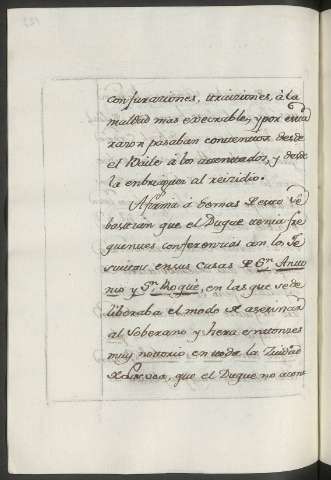 conjuraciones, traiciones, à la
maldad mas execrable, y por esta
razon pasaban contentos desde
el Baile á los atentados, y desde
la enbriaguez al reizidio.
Afirma á bernas Desto Sê
bastian que el Duque tenia fre
quentes conferencias con lo Je
suitas en sus Casas de Sn. Anto
nio y Sn. Roque, en las que se de
liberaba el modo de asesinar
al Soberano y hera entonses
muy notorio en toda la Ziudad
de Lisvoa, que el Duque no acont